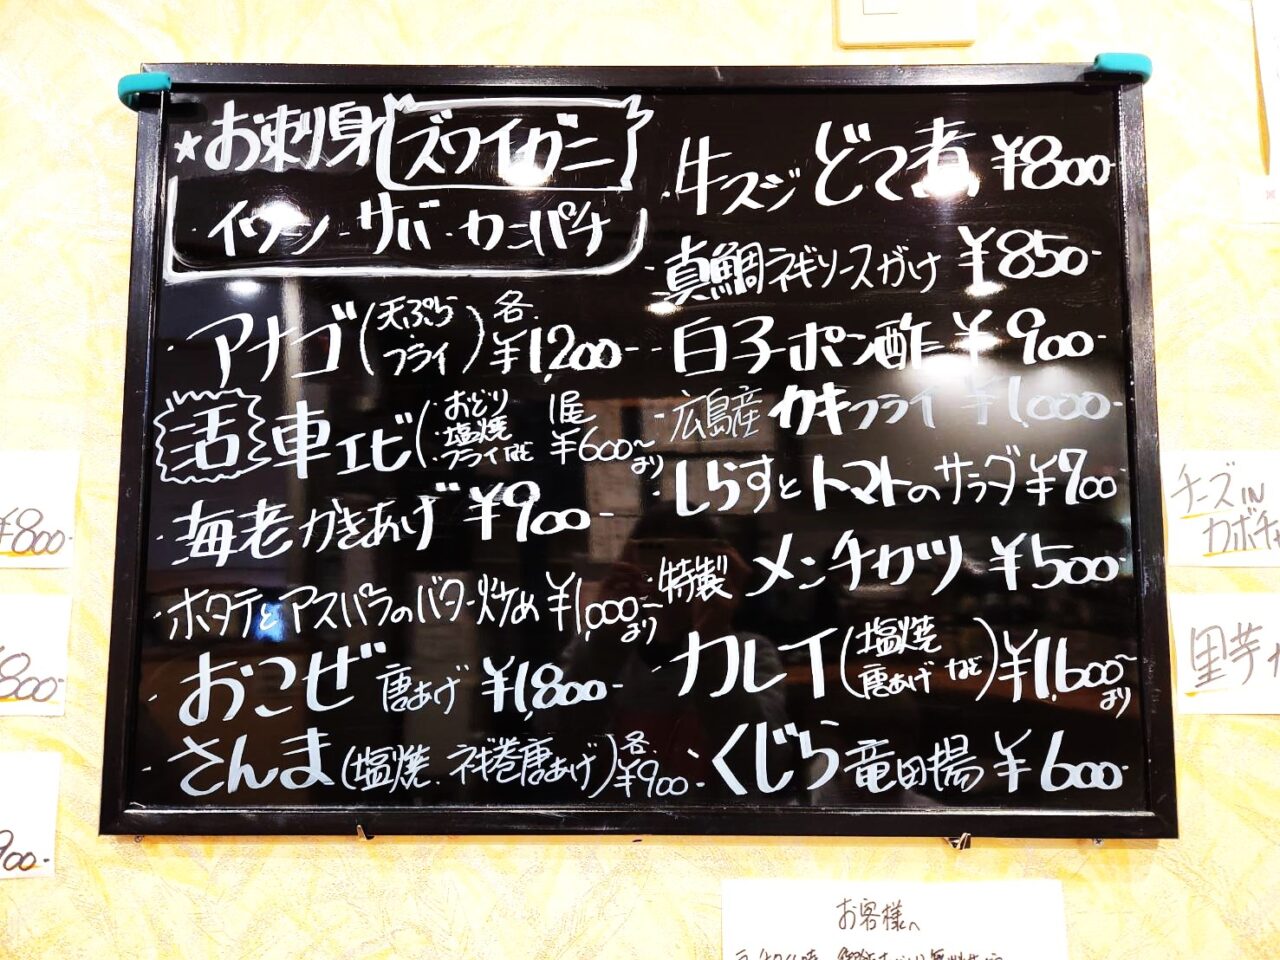 ★お刺身 ズワイガニ
・イワシ・サバ・カンパチ
・アナゴ(天ぷら フライ) 各 ¥1,200-
活 車エビ(・おどり ・塩焼 ・フライなど 1尾 ¥600~より
・海老かきあげ ¥900-
・ホタテとアスパラのバター炒め ¥1,000~より
・おこぜ 唐あげ ¥1,800-
・さんま(塩焼、ネギ巻唐あげ) 各 ¥900-
・牛スジどて煮 ¥800-
・真鯛ネギソースがけ ¥850-
・白子ポン酢 ¥900-
・広島産カキフライ ¥1,000-
・しらすとトマトのサラダ ¥700
・特製メンチカツ ¥500-
・カレイ(塩焼 唐あげ など) ¥1,600~より
・くじら竜田揚 ¥600-
¥800-
800-
900-
チーズIN
カボチャ
里芋
お客様へ